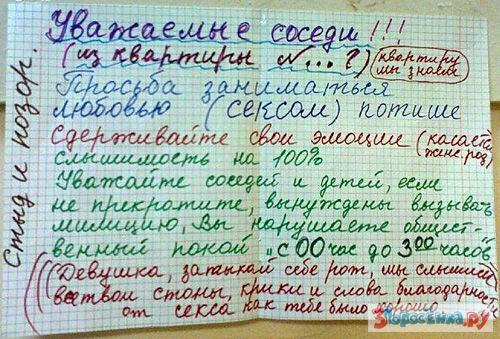 Уважаемые соседи!!!
(из квартиры №...?)
(квартиру мы знаем)
Просьба заниматься
любовью (сексом) потише
Сдерживайте свои эмоции (касается женс.род)
слышимость на 100%
Уважайте соседей и детей, если
не прекратите, вынуждены вызывать
милицию, Вы нарушаете общест-
венный покой "с 00 час до 3 00 часов"
((Девушка, затыкай себе рот, мы слышим
все твои стоны, крики и слова благодарности
от секса как тебе было хорошо
Стыд и позор.
3Поросенка.ру